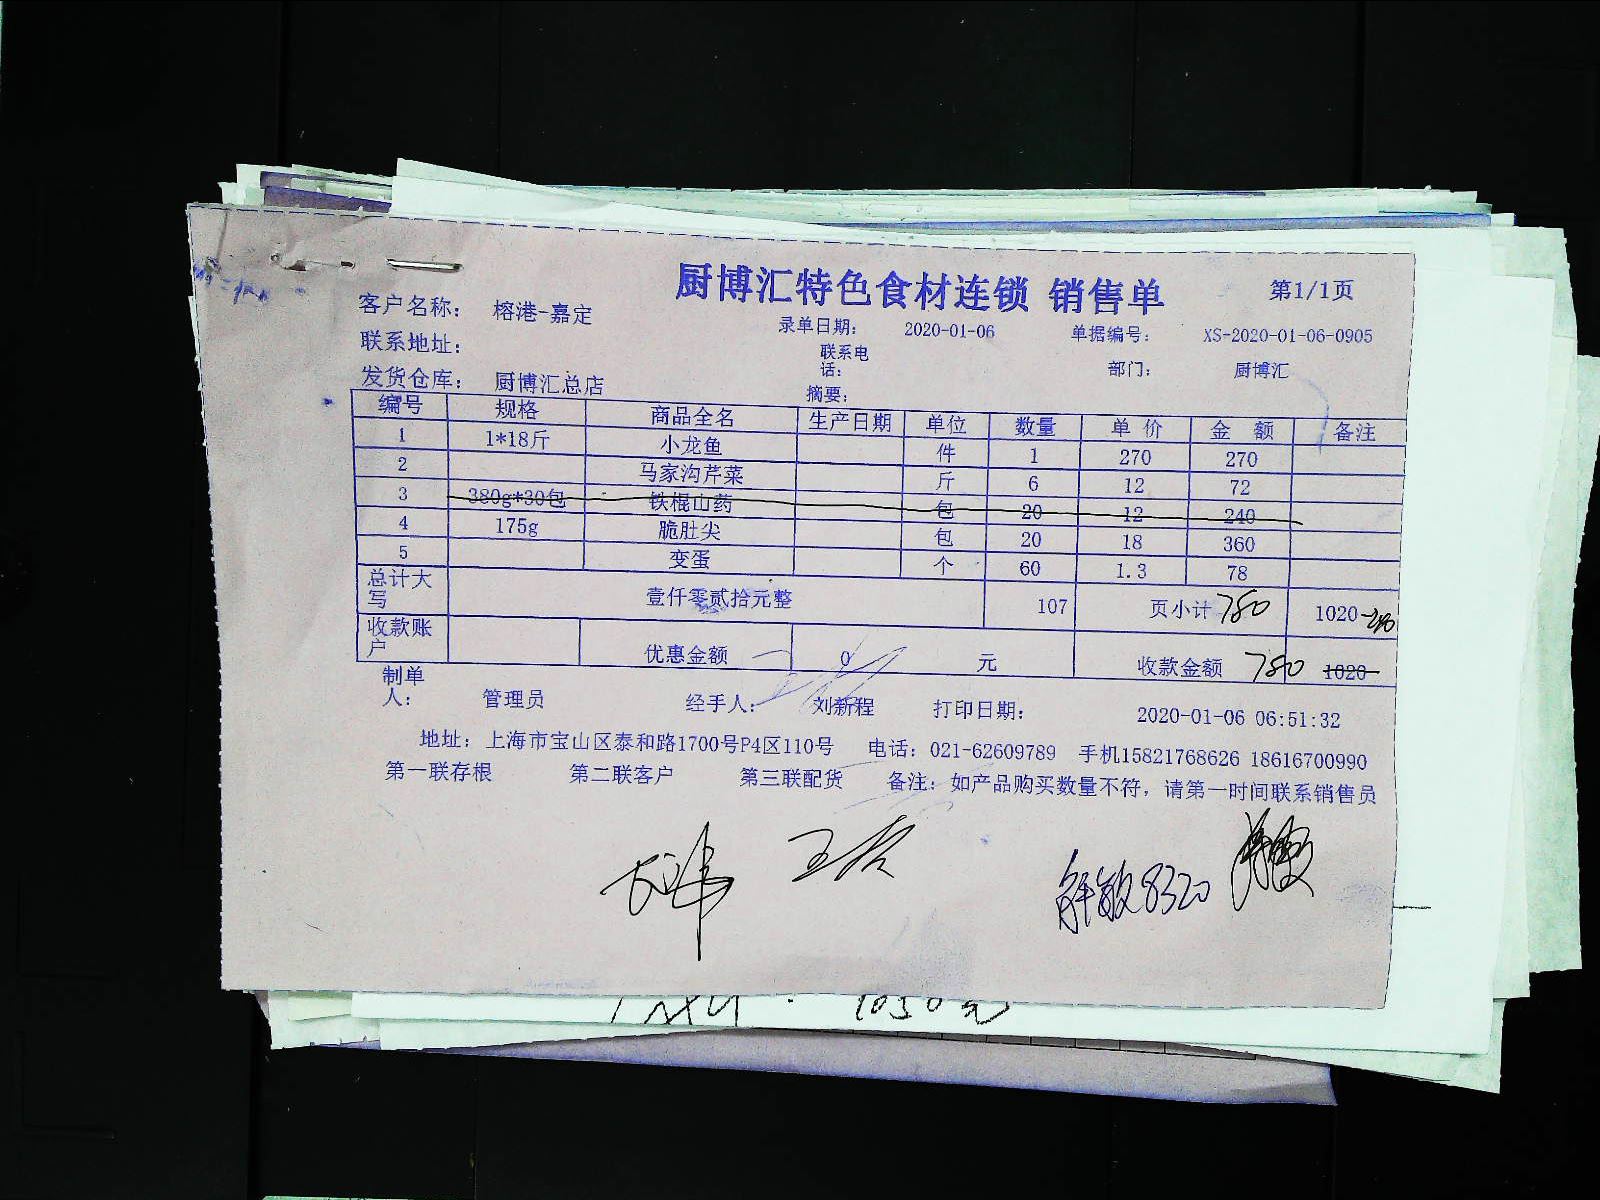 厨博汇特色食材连锁 销售单 第1/1页
客户名称: 榕港-嘉定 录单日期: 2020-01-06 单据编号: XS-2020-01-06-0905
联系地址: 联系电话: 部门: 厨博汇
发货仓库: 厨博汇总店 摘要:
编号 规格 商品全名 生产日期 单位 数量 单价 金额 备注
1 1*18斤 小龙鱼 件 1 270 270
2 马家沟芹菜 斤 6 12 72
3 380g*30包 铁棍山药 包 20 12 240
4 175g 脆肚尖 包 20 18 360
5 变蛋 个 60 1.3 78
总计大写 壹仟零贰拾元整 107 页小计 780 1020-240
收款账户 优惠金额 0 元 收款金额 780 1020
制单人: 管理员 经手人: 刘新程 打印日期: 2020-01-06 06:51:32
地址: 上海市宝山区泰和路1700号P4区110号 电话: 021-62609789 手机15821768626 18616700990
第一联存根 第二联客户 第三联配货 备注: 如产品购买数量不符, 请第一时间联系销售员
8320
1050元